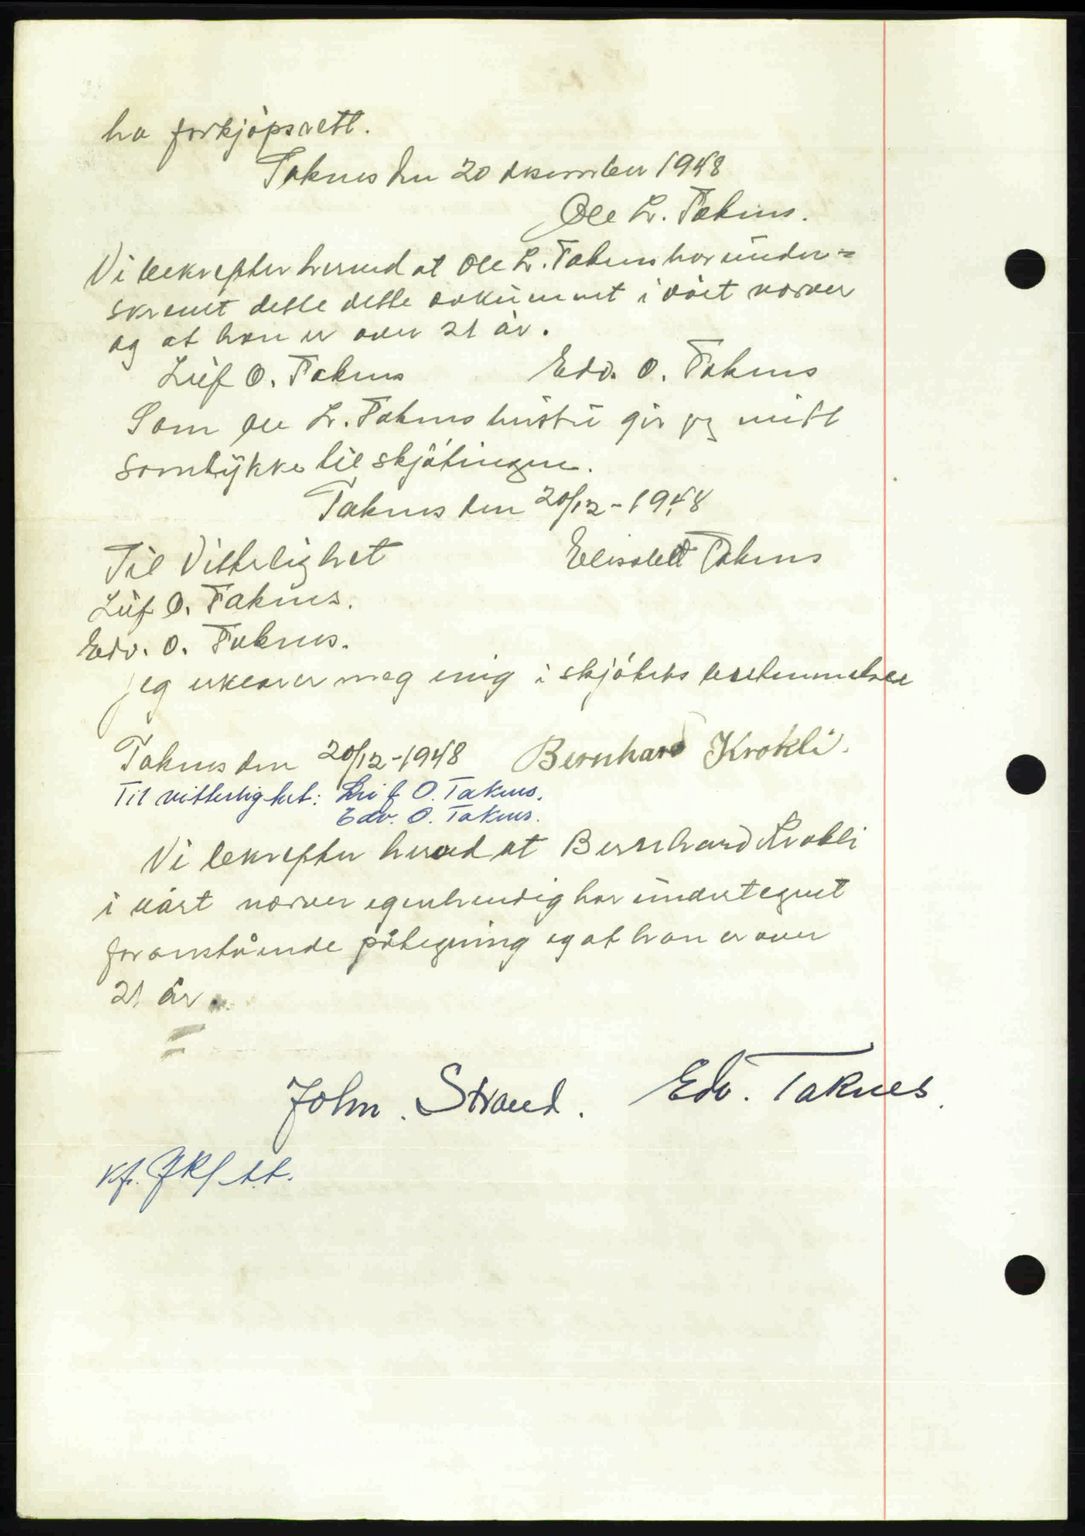 ha forkjøpsrett.
Taknes den 20 desember 1948
Ole L. Taknes.
Vi bekrefter herved at Ole L. Taknes har under=
skrevet dette dette dokument i vårt nærver
og at han er over 21 år.
Leif O. Taknes Edv. O. Taknes
Som Ole L. Taknes hustru gir jeg mitt
samtykke til skjøtingen.
Taknes den 20/12-1948
Til Vitterlighet Elisabett Taknes
Leif O. Taknes.
Edv. O. Taknes.
Jeg erklærer meg enig i skjøtets bestemmelser
Taknes den 20/12-1948 Bernhard Krokli.
Til vitterlighet: Leif O. Taknes.
Edv. O. Taknes.
Vi bekrefter herved at Bernhard Krokli
i vårt nærver egenhendig har undertegnet
foranstående påtegning og at han er over
21 år.
John. Strand. Edv. Taknes.
Kf.